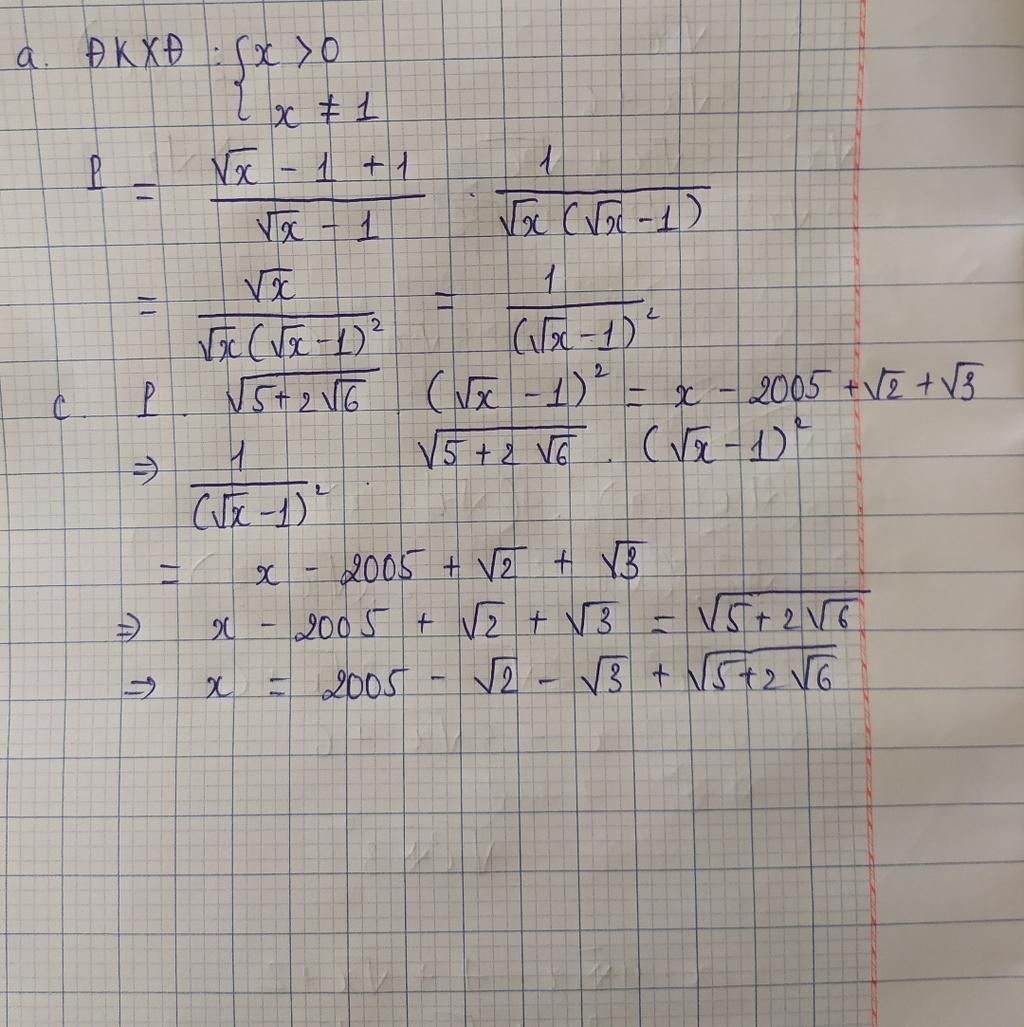 a. ĐKXĐ : { x > 0
{ x ≠ 1
P = (√x - 1 + 1)/(√x - 1) . 1/(√x (√x - 1))
= √x/(√x (√x - 1)²) = 1/(√x - 1)²
c. P . √(5 + 2√6) . (√x - 1)² = x - 2005 + √2 + √3
⇒ 1/(√x - 1)² . √(5 + 2√6) . (√x - 1)²
= x - 2005 + √2 + √3
⇒ x - 2005 + √2 + √3 = √(5 + 2√6)
⇒ x = 2005 - √2 - √3 + √(5 + 2√6)